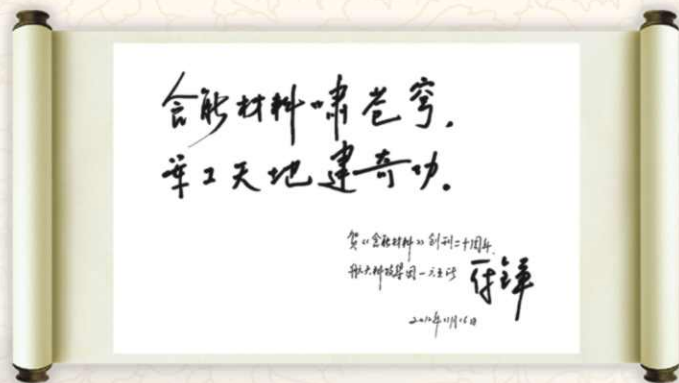 含能材料啸苍穹，
军工天地建奇功。
贺《含能材料》创刊二十周年
航天科技集团一元五所
2012年11月16日